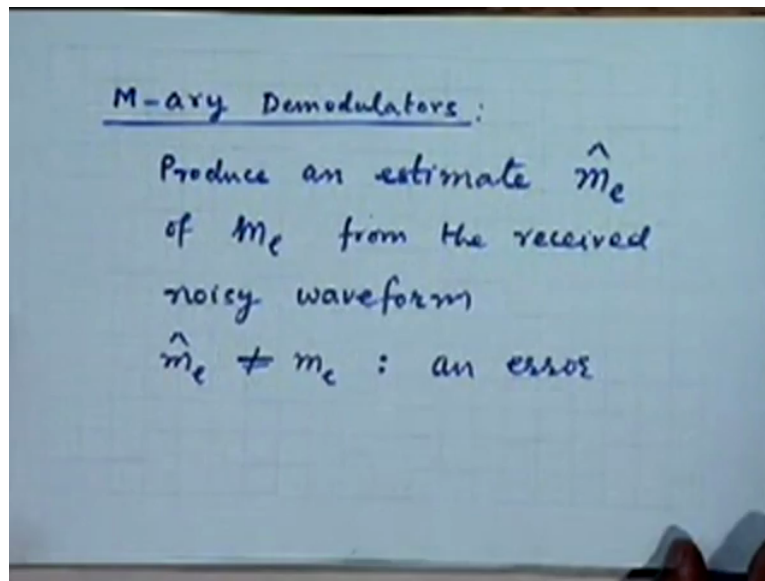 M-ary Demodulators:
Produce an estimate m̂ₑ
of mₑ from the received
noisy waveform
m̂ₑ ≠ mₑ : an error